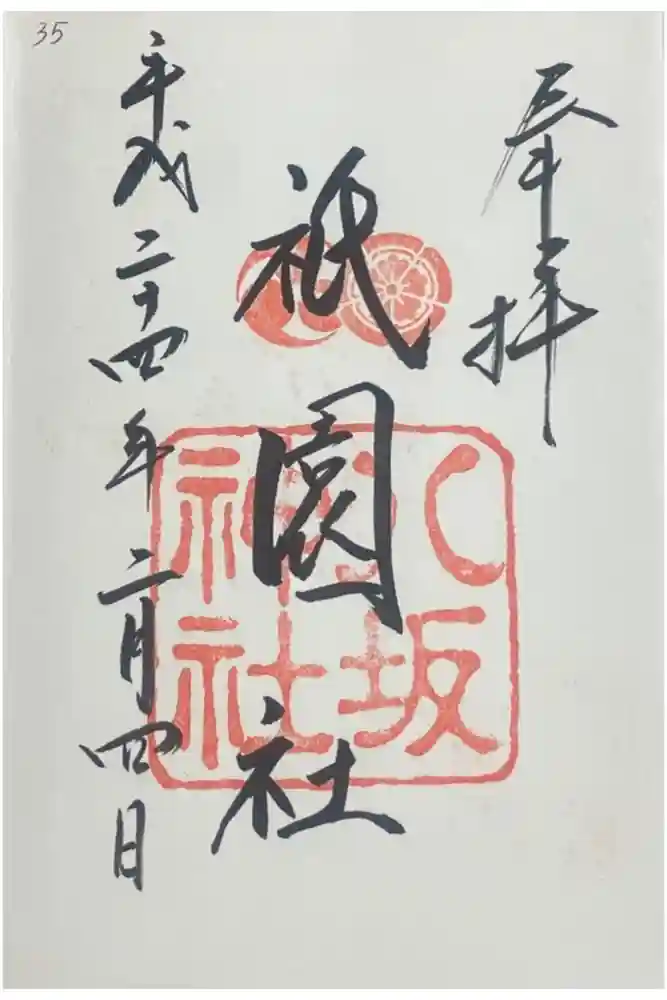 35
奉拝
祇園社
八坂
神社
平成二十四年二月四日